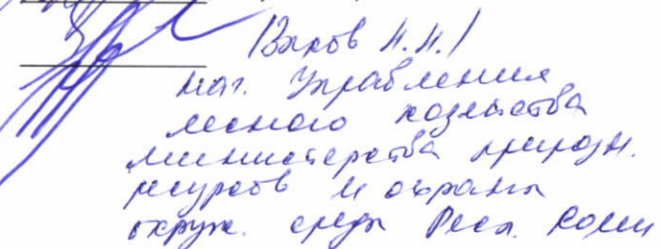 /Вахов Н.Н./
нач. Управления
лесного хозяйства
министерства природн.
ресурсов и охраны
окруж. среды Респ. Коми